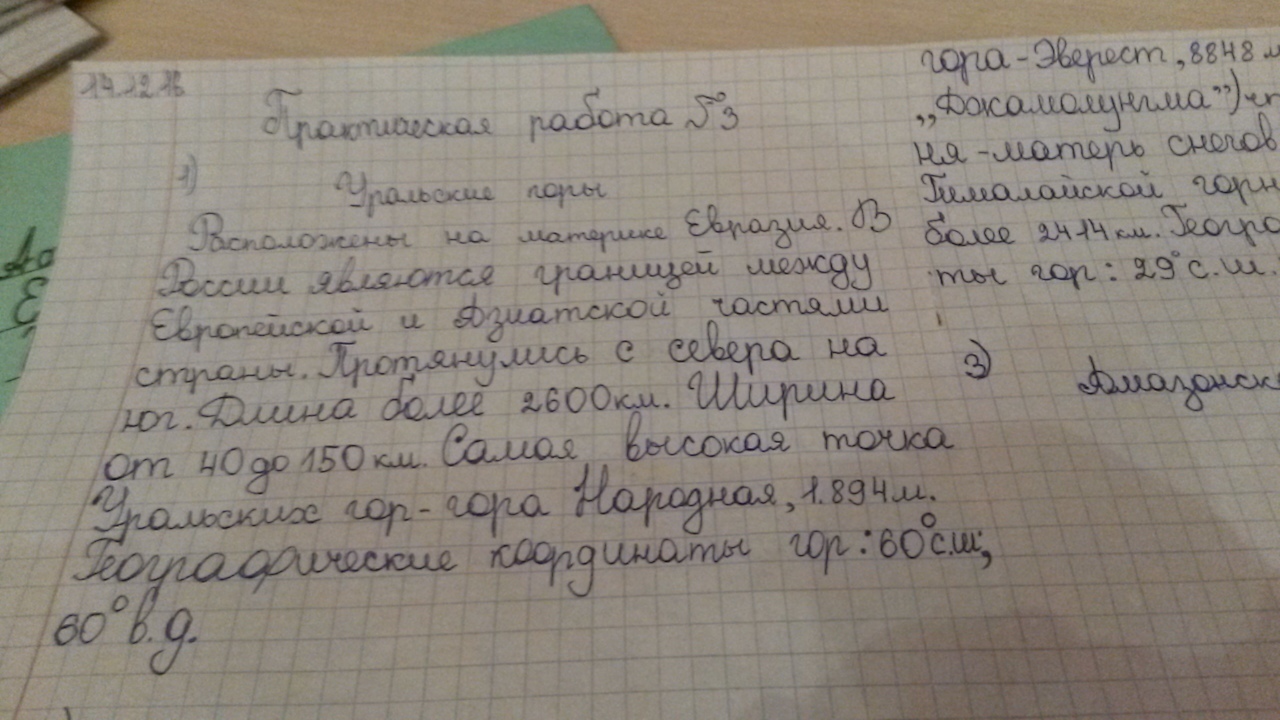 14.12.18
Практическая работа №3
1)
Уральские горы
Расположены на материке Евразия. В
России являются границей между
Европейской и Азиатской частями
страны. Протянулись с севера на
юг. Длина более 2600км. Ширина
от 40 до 150 км. Самая высокая точка
Уральских гор-гора Народная, 1.894м.
Географические координаты гор: 60° с.ш;
60° в.д.
гора-Эверест, 8848 м
„Джамолунгма”)
ня-матерь снегов
Гималайской горн
более 2414 км. Геогра
ты гор: 29° с.ш.
3) Амазонск